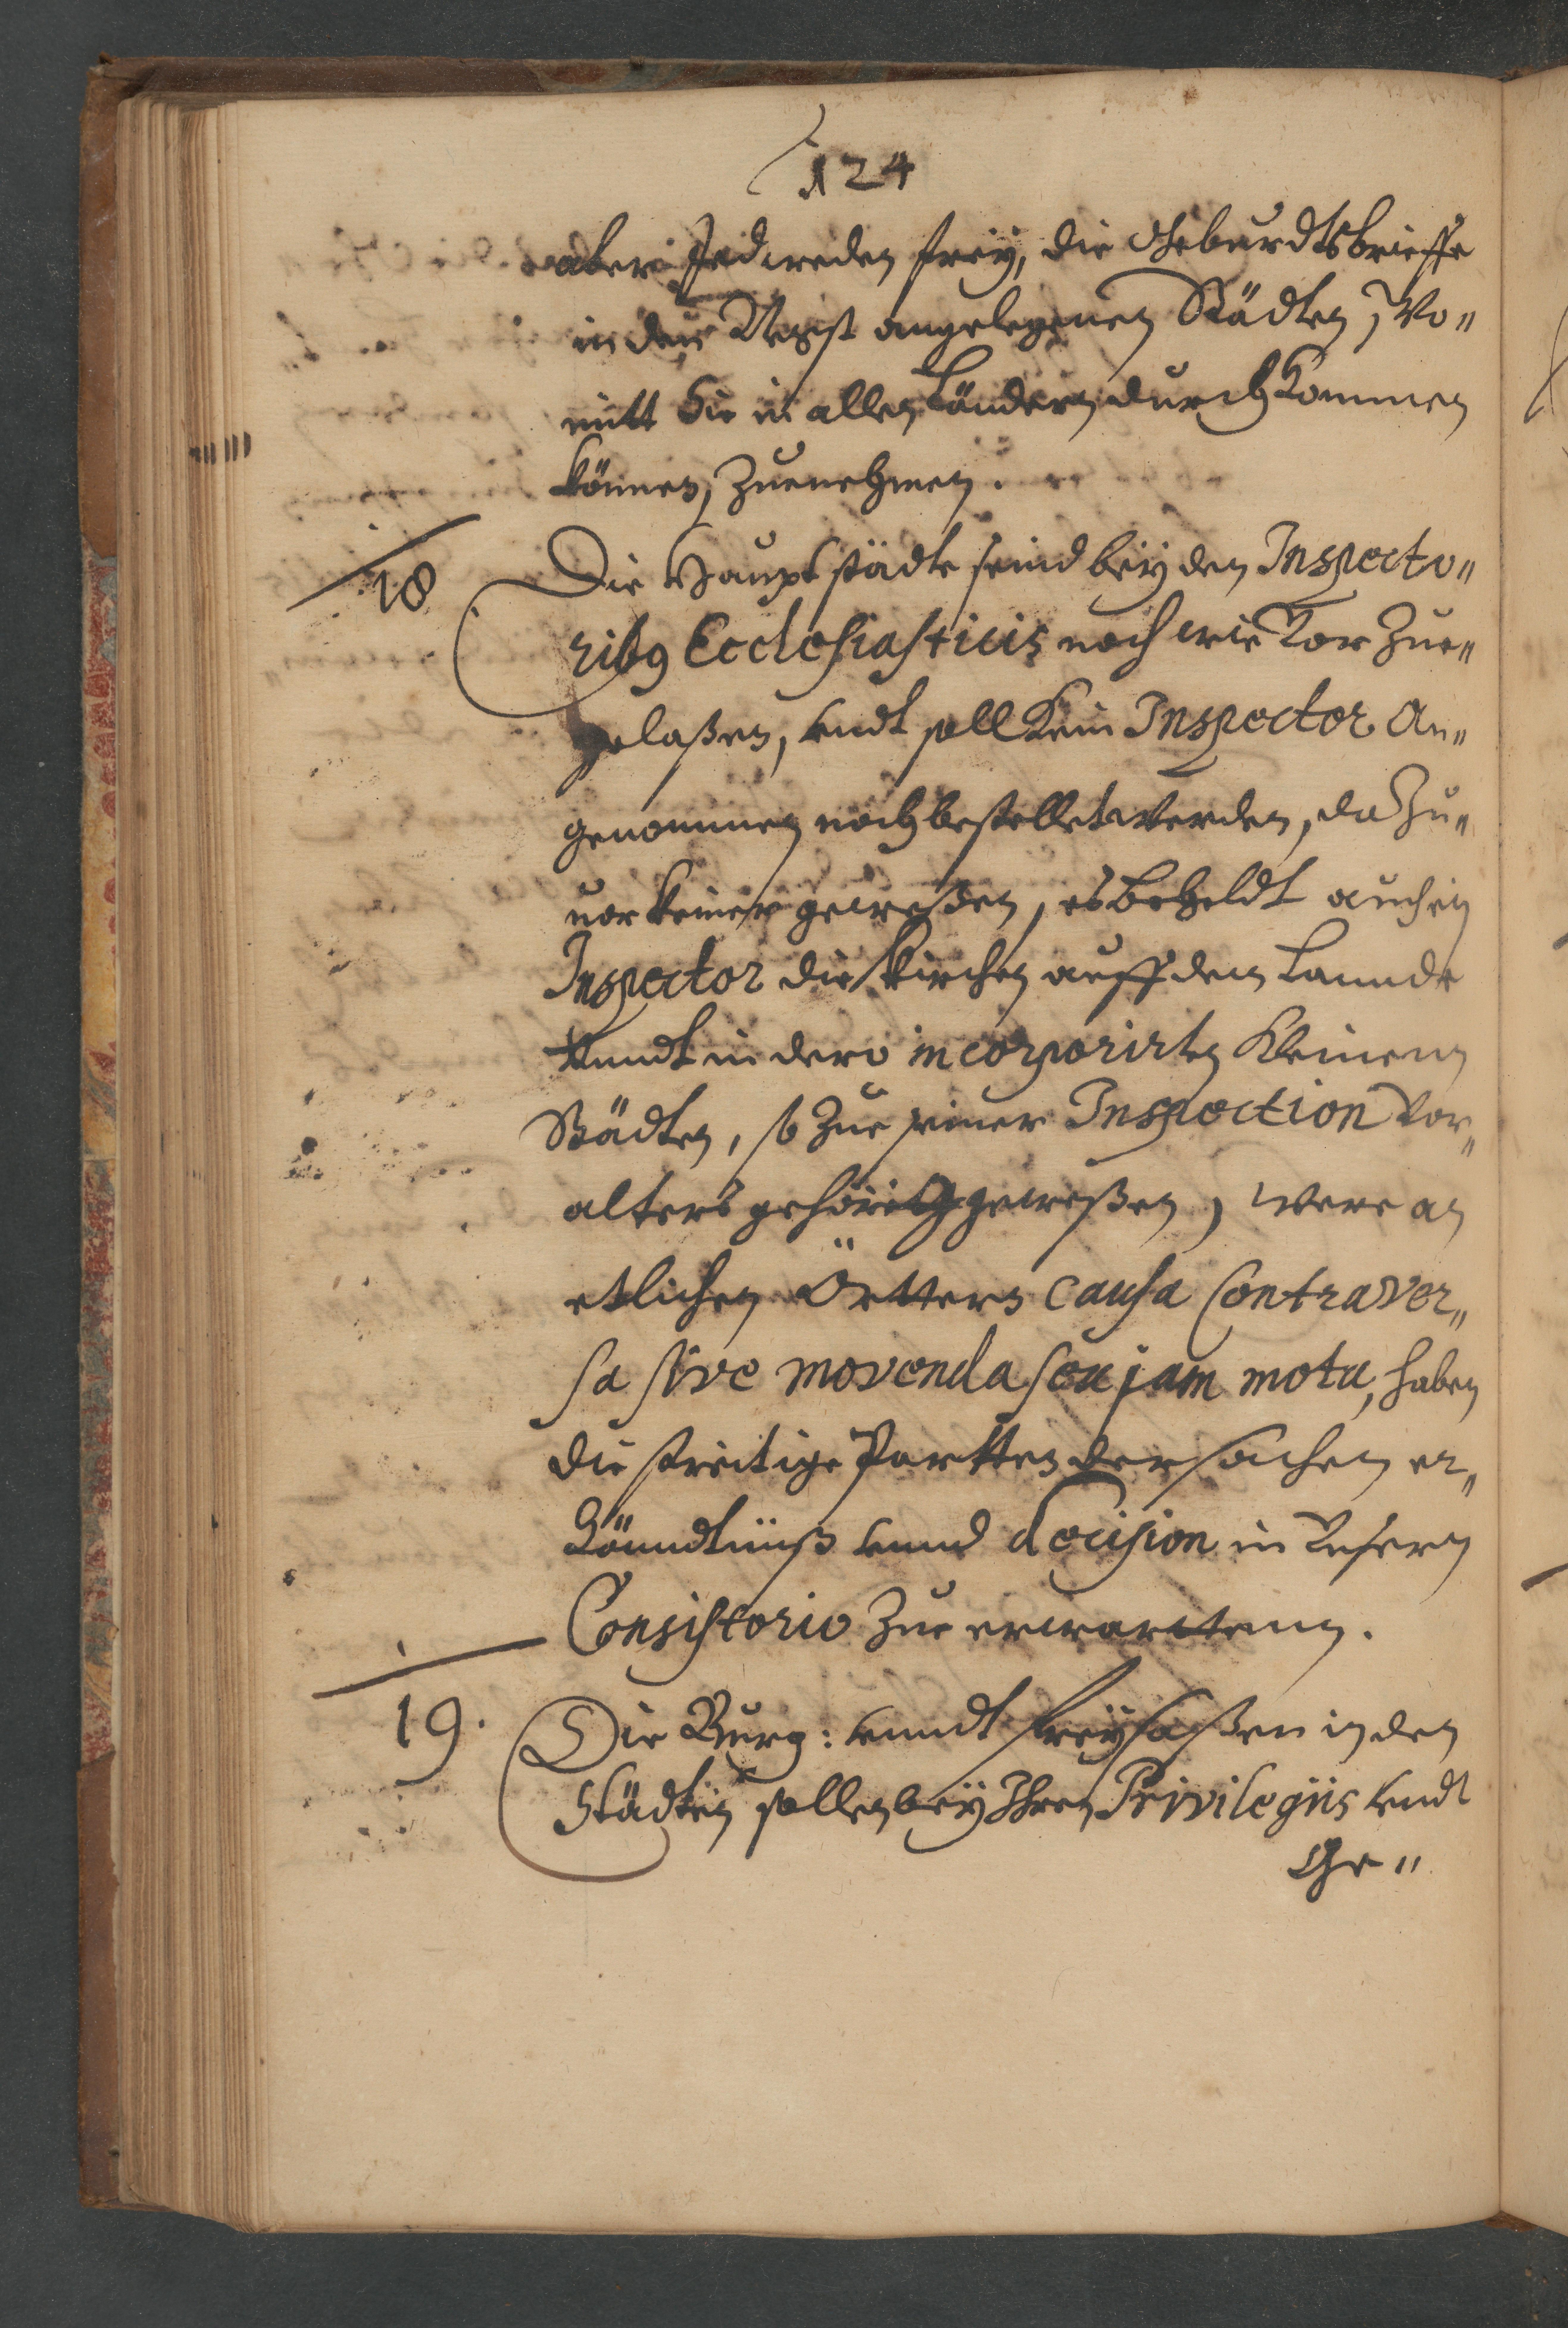 124
aber Jedweden freÿ, die Geburdtsbrieffe
in den Negst angelegenen Städten, Wo„
mitt Sie in allen Ländern durch Kommen
können, Zuenehmen.
18 Die Haupt städte seind beÿ den Inspecto„
rib9 Ecclesiasticis noch wie Vor Zue„
gelaßen, undt soll Kein Inspector An„
genommen noch bestellet werden, da Zu„
uor keiner geweßen, es beheldt auch ein
Inspector die Kirchen auff dem Lannde
unndt in dero incorporirten Kleinenn
Städten, so Zue seiner Inspection Vor„
alters gehörig geweßen, Were an
etlichen Örttern causa Contraver„
sa sive movenda seu jam mota, haben
die streitige Partten der sachen er„
Känndtnüß unnd decision in Unsern
Consistorio Zue erwarttenn.
19. Die Burg: unndt freÿsaßen in den
Städten sollen beÿ Ihren Privilegiis undt
Ge„